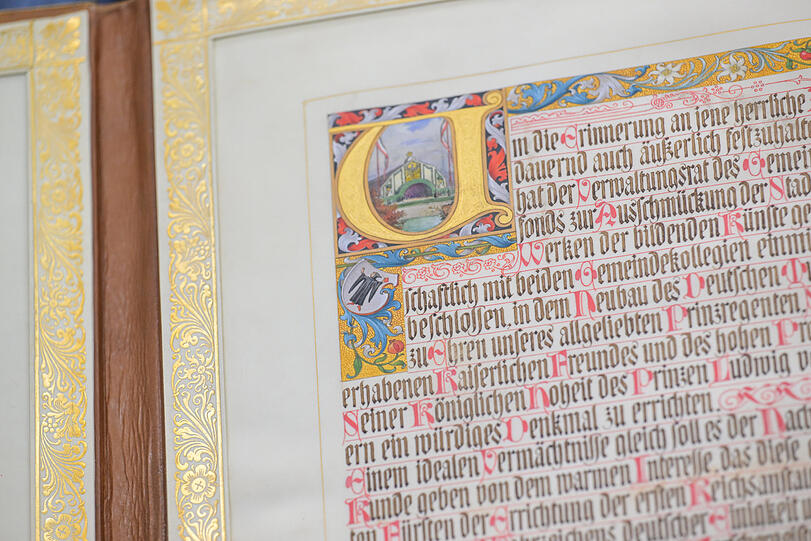 U
in die Erinnerung an jene herrliche
dauernd auch äußerlich festzuhalt
hat der Verwaltungsrat des Gemei
fonds zur Ausschmückung der Stad
Werken der bildenden Künste ge
schaftlich mit beiden Gemeindekollegien einmü
beschlossen, in dem Neubau des Deutschen
zu Ehren unseres allgeliebten Prinzregenten,
erhabenen Kaiserlichen Freundes und des hohen P
Seiner Königlichen Hoheit des Prinzen Ludwig
ern ein würdiges Denkmal zu errichten
Einem idealen Vermächtnisse gleich soll es der Nach
Kunde geben von dem warmen Interesse, das diese
ten Fürsten der Errichtung der ersten Reichsanstal
übereichens Deutscher Einigkeit